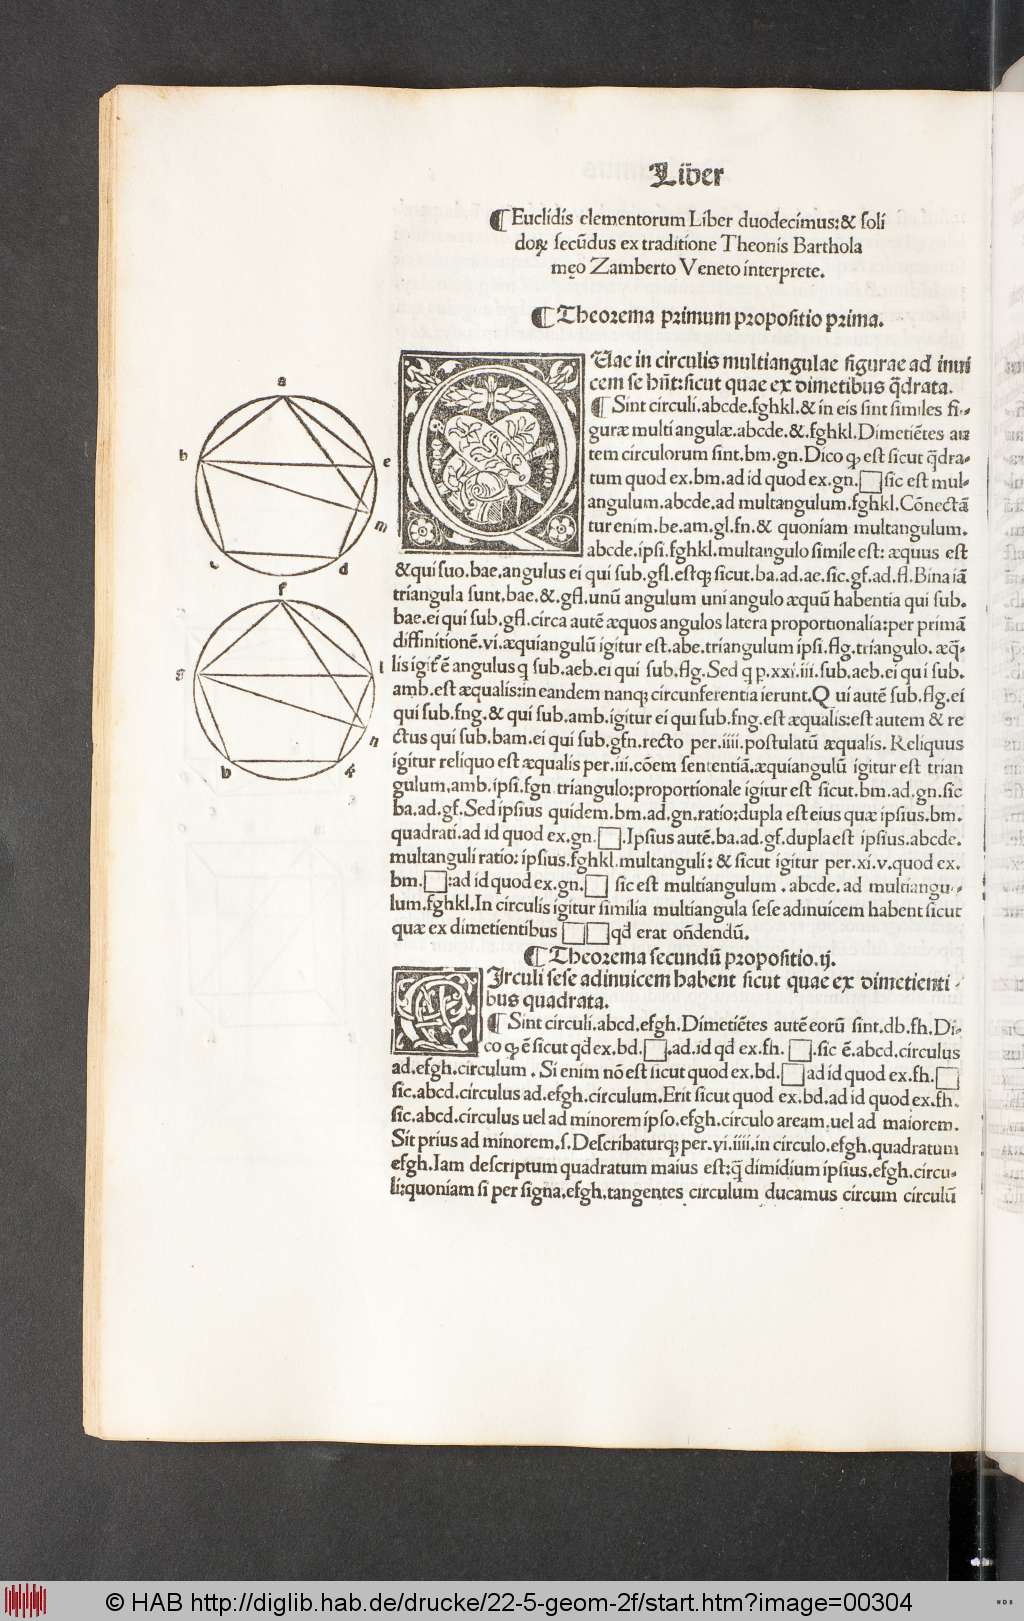 Liber
¶ Euclidis elementorum Liber duodecimus:& soli
doꝝ secũdus ex traditione Theonis Barthola
męo Zamberto Veneto interprete.
¶ Theorema primum propositio prima.
QUae in circulis multiangulae figurae ad inui
cem se hñt:sicut quae ex dimetibus q̃drata.
¶ Sint circuli.abcde.fghkl.& in eis sint similes fi-
guræ multi angulæ.abcde.&.fghkl.Dimetiẽtes au
tem circulorum sint.bm.gn.Dico ꝙ est sicut q̃dra-
tum quod ex.bm.ad id quod ex.gn.□ sic est mul-
angulum.abcde.ad multangulum.fghkl.Cõnectã
tur enim.be.am.gl.fn.& quoniam multangulum.
abcde.ipsi.fghkl.multangulo simile est: æquus est
& qui suo.bae.angulus ei qui sub.gfl.estqꝫ sicut.ba.ad.ae.sic.gf.ad.fl.Bina iã
triangula sunt.bae.&.gfl.unũ angulum uni angulo æquũ habentia qui sub.
bae.ei qui sub.gfl.circa autẽ æquos angulos latera proportionalia:per primã
diffinitionẽ.vi.æquiangulũ igitur est.abe.triangulum ipsi.flg.triangulo. æq̃-
lis igit᷑ ẽ angulus q sub.aeb.ei qui sub.flg.Sed q p.xxi.iii.sub.aeb.ei qui sub.
amb.est æqualis:in eandem nanqꝫ circunferentia ierunt.Qui autẽ sub.flg.ei
qui sub.fng.& qui sub.amb.igitur ei qui sub.fng.est æqualis:est autem & re
ctus qui sub.bam.ei qui sub.gfn.recto per.iiii.postulatũ æqualis. Reliquus
igitur reliquo est æqualis per.iii.cõem sententiã.æquiangulũ igitur est trian
gulum.amb.ipsi.fgn.triangulo:proportionale igitur est sicut.bm.ad.gn.sic
ba.ad.gf.Sed ipsius quidem.bm.ad.gn.ratio:dupla est eius quæ ipsius.bm.
quadrati.ad id quod ex.gn.□.Ipsius autẽ.ba.ad.gf.dupla est ipsius.abcde.
multanguli ratio: ipsius.fghkl.multanguli: & sicut igitur per.xi.v.quod ex.
bm.□:ad id quod ex.gn.□ sic est multiangulum.abcde.ad multiangu-
lum.fghkl.In circulis igitur similia multiangula sese adinuicem habent sicut
quæ ex dimetientibus □□ qđ erat oñdendũ.
¶ Theorema secundũ propositio.ij.
CIrculi sese adinuicem habent sicut quae ex dimetienti-
bus quadrata.
¶ Sint circuli.abcd.efgh.Dimetiẽtes autẽ eorũ sint.db.fh.Di-
co ꝙ ẽ sicut qđ ex.bd.□.ad.id qđ ex.fh.□.sic ẽ.abcd.circulus
ad.efgh.circulum. Si enim nõ est sicut quod ex.bd.□ ad id quod ex.fh.□
sic.abcd.circulus ad.efgh.circulum.Erit sicut quod ex.bd.ad id quod ex.fh.
sic.abcd.circulus uel ad minorem ipso.efgh.circulo aream.uel ad maiorem.
Sit prius ad minorem.s.Describaturqꝫ per.vi.iiii.in circulo.efgh.quadratum
efgh.Iam descriptum quadratum maius est:q̃ dimidium ipsius.efgh.circu-
li:quoniam si per signa.efgh.tangentes circulum ducamus circum circulũ
a
b
e
m
c
d
f
g
l
n
h
k
© HAB http://diglib.hab.de/drucke/22-5-geom-2f/start.htm?image=00304